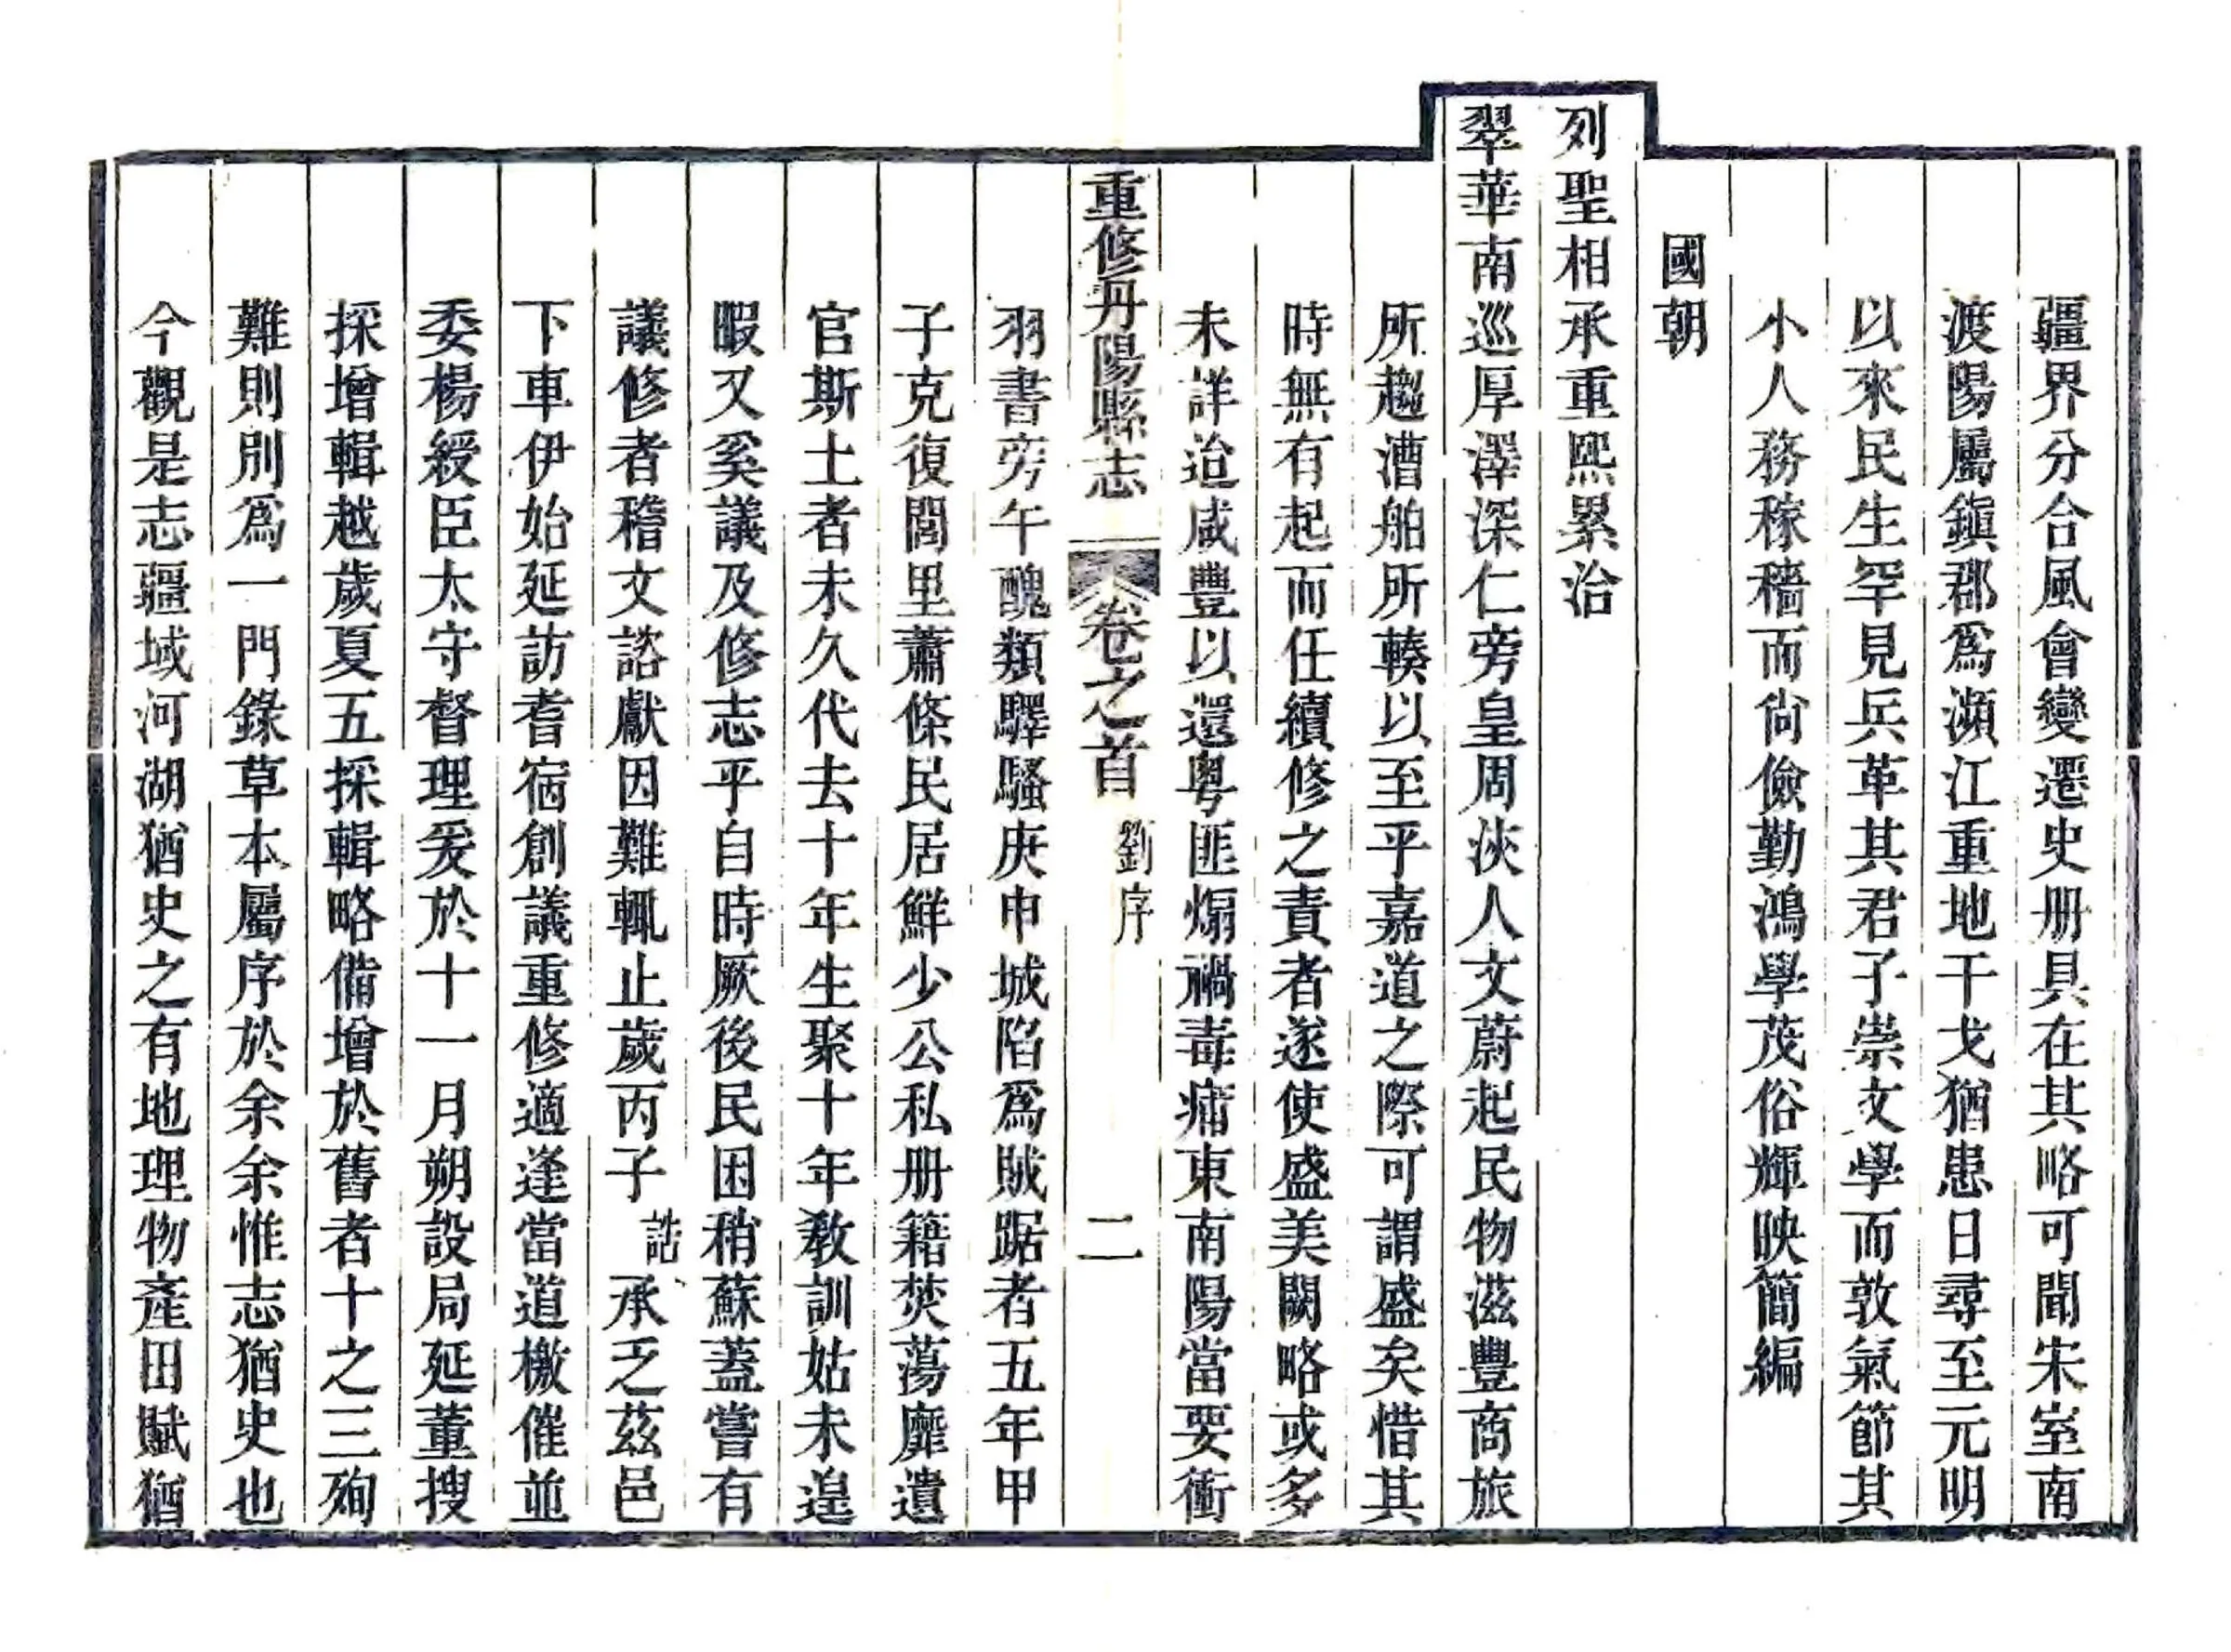 疆界分合風會變遷史册具在其略可聞宋室南
渡陽屬鎭郡爲瀕江重地干戈猶患日尋至元明
以來民生罕見兵革其君子崇文學而敦氣節其
小人務稼穡而尙儉勤鴻學茂俗輝映簡編
國朝
列聖相承重熙累洽
翠華南巡厚澤深仁旁皇周浹人文蔚起民物滋豐商旅
所趨漕舶所輳以至乎嘉道之際可謂盛矣惜其
時無有起而任續修之責者遂使盛美闕略或多
未詳迨咸豐以還粵匪煽禍毒痡東南陽當要衝
重修丹陽縣志 卷之首 劉序 二
羽書旁午醜類驛騷庚申城陷爲賊踞者五年甲
子克復閭里蕭條民居鮮少公私册籍焚蕩靡遺
官斯土者未久代去十年生聚十年敎訓姑未遑
暇又奚議及修志乎自時厥後民困稍蘇蓋嘗有
議修者稽文諮獻因難輒止歲丙子誥承乏茲邑
下車伊始延訪耆宿創議重修適逢當道檄催並
委楊綬臣太守督理爰於十一月朔設局延董搜
採增輯越歲夏五採輯略備增於舊者十之三殉
難則別爲一門錄草本屬序於余余惟志猶史也
今觀是志疆域河湖猶史之有地理物產田賦猶